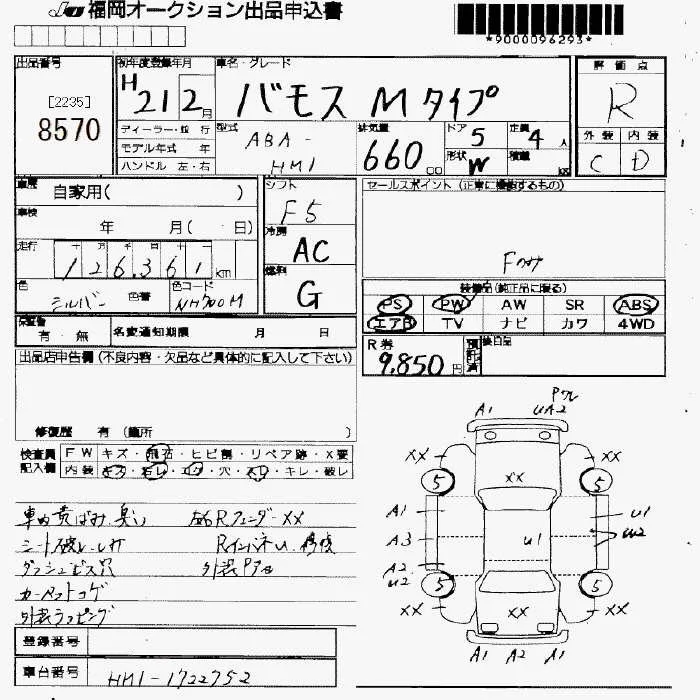 JU 福岡オークション出品申込書
*9000096293*
出品番号
[2235]
8570
初年度登録年月
H 21 2 月
車名・グレード
バモス Mタイプ
評価点
R
外装 内装
C D
ディーラー・並行
モデル年式 年
ハンドル 左・右
型式
ABA-
HM1
排気量
660 cc
ドア 5
形状 W
定員 4 人
積載
車歴
自家用( )
車検
年 月( 日)
走行
126,361 km
色
シルバー 色替
色コード
NH700M
シフト
F5
冷房
AC
燃料
G
セールスポイント (正常に機能するもの)
Fのみ
装備品(純正品に限る)
PS PW AW SR ABS
エアB TV ナビ カワ 4WD
保証書
有・無
名変通知期限 月 日
R券
9,850 円
預託済
後日品
出品店申告欄 (不良内容・欠品など具体的に記入して下さい)
修復歴 有 (箇所 )
検査員記入欄
FW キズ・飛石・ヒビ割・リペア跡・X要
内装 キズ・汚レ・コゲ・穴・スレ・キレ・破レ
車内荒ばみ 臭い
シート破レ
ダッシュビス穴
カーペットコゲ
外装ラッピング
左右Rフェンダー XX
Rインパネ U 修復
外装
A1 UA2
XX XX
5 5
XX
A1 U1
A3 U1 U2
A2
U2
5 5
XX XX XX
A1 A2 A1
登録番号
車台番号
HM1-1722752